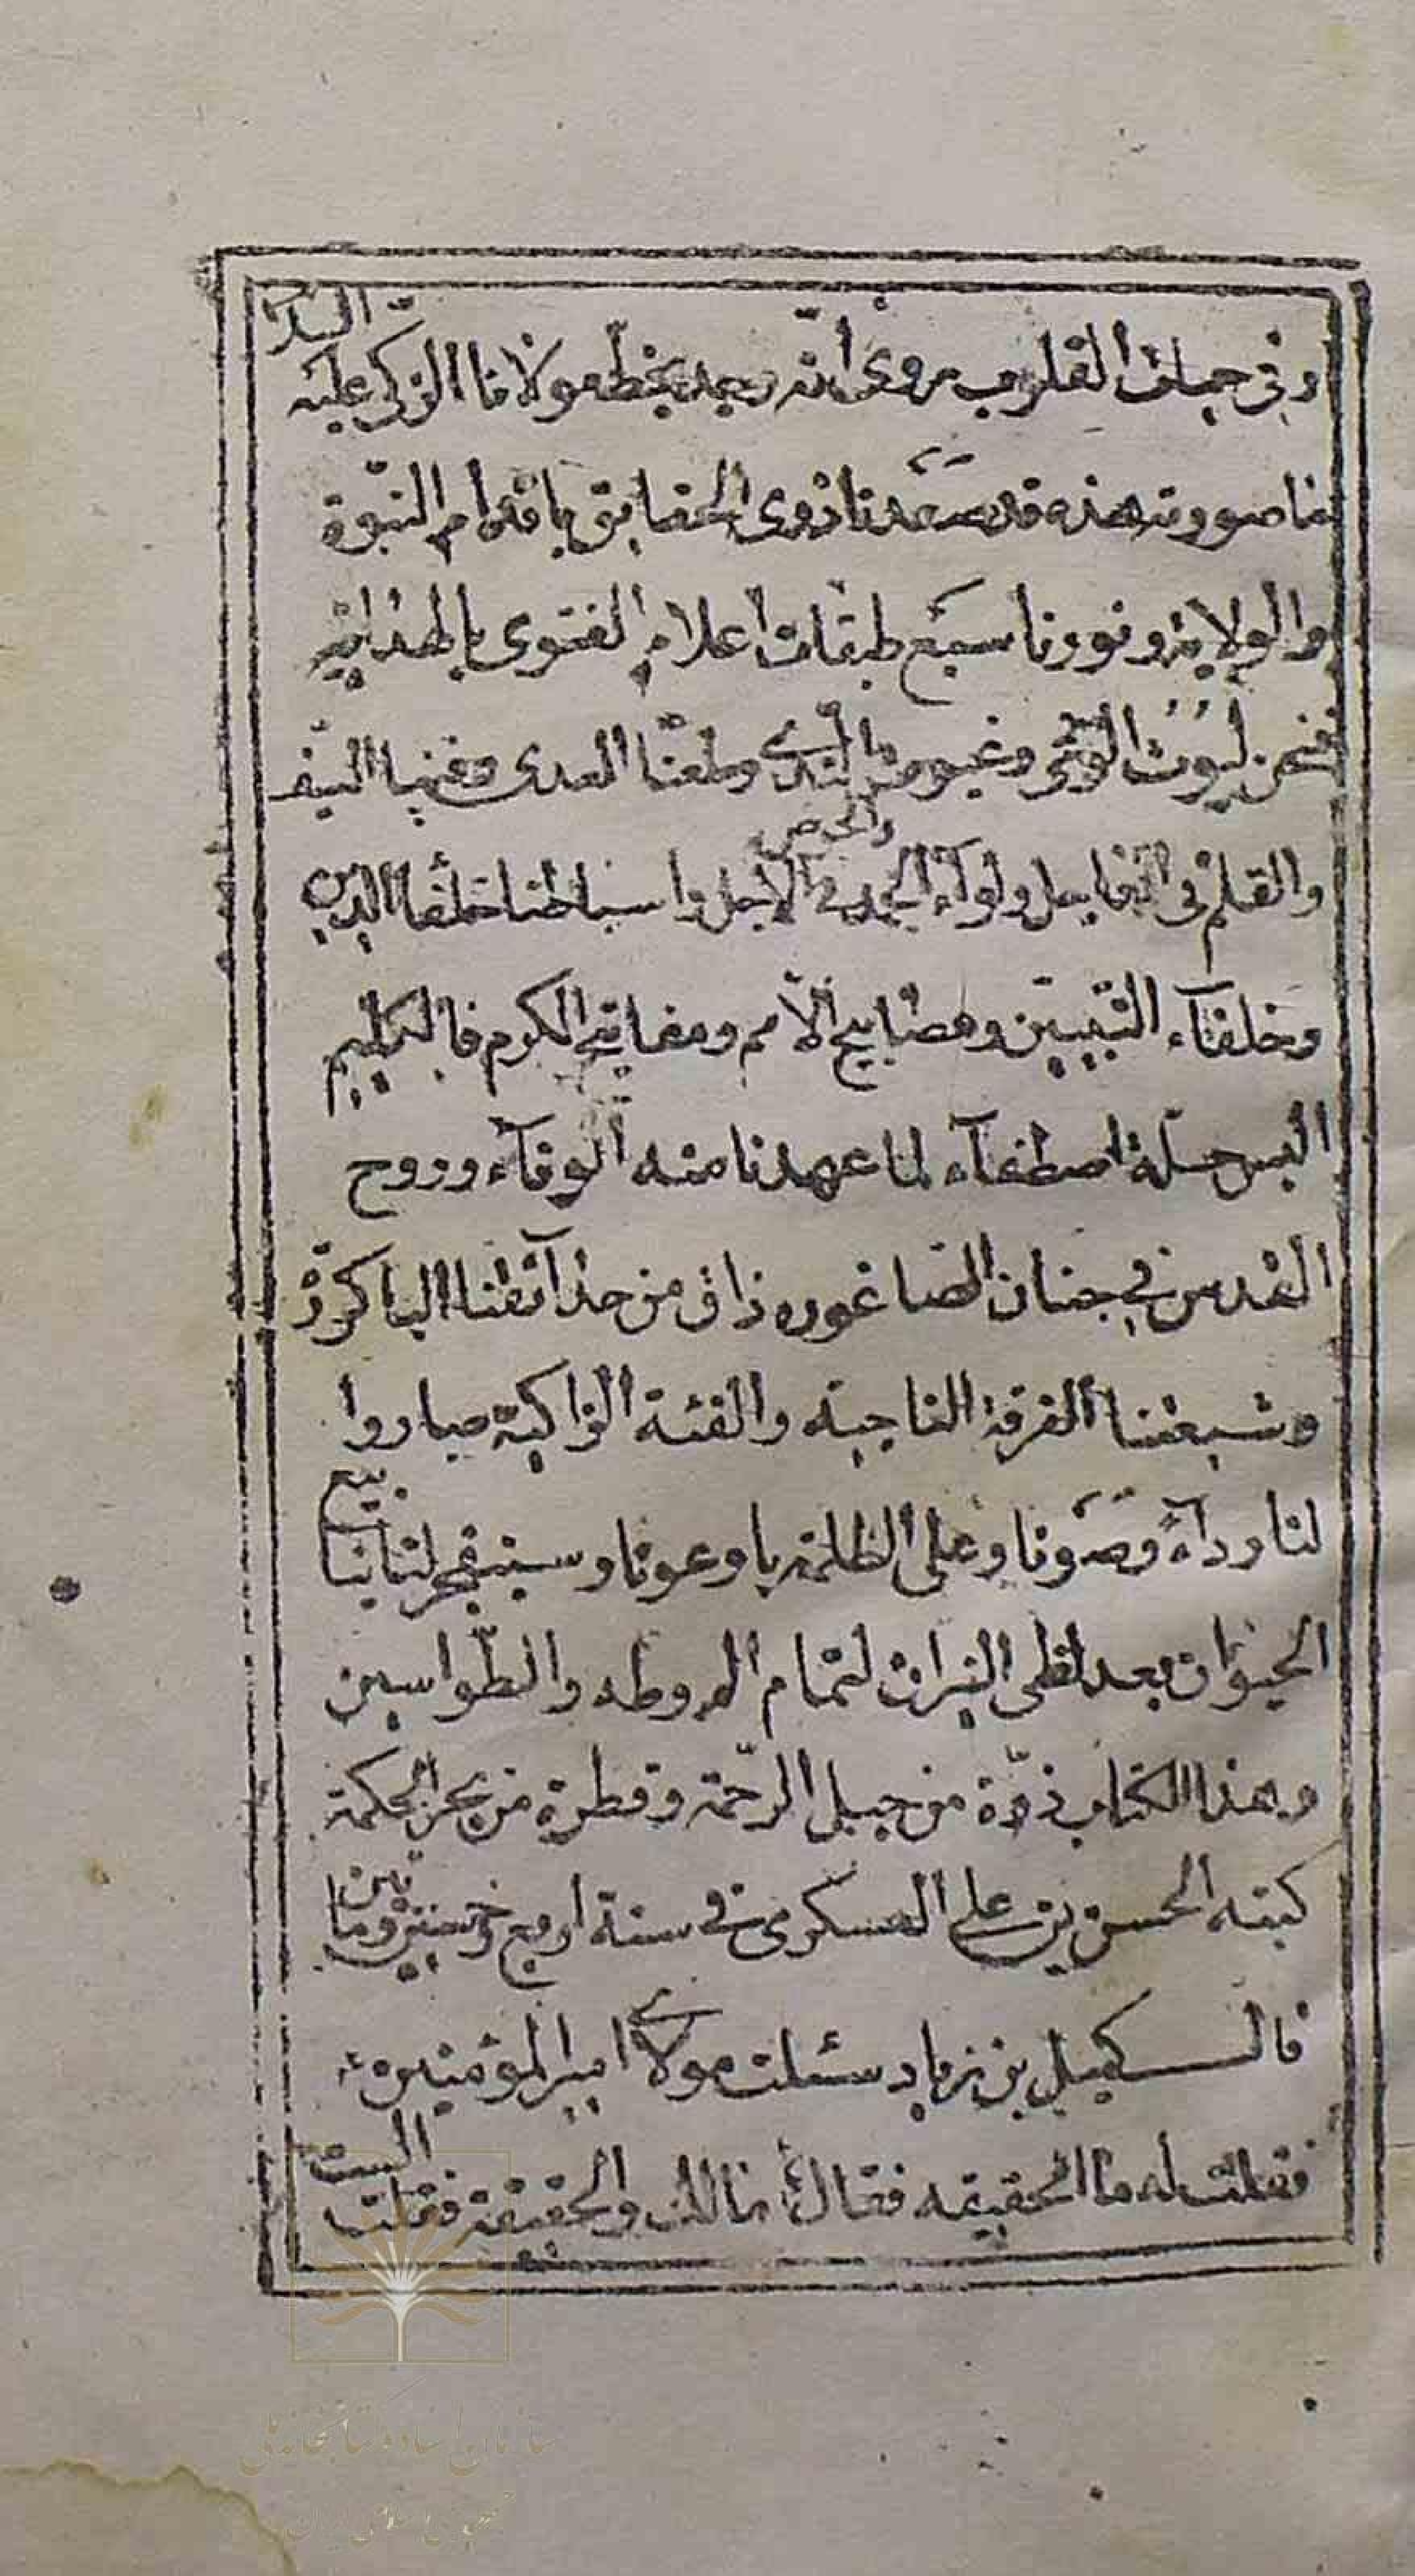 وفی حیات القلوب مروی أنّه وجد بخطّ مولانا الزکی علیه السلا
ما صورته هذه قد صعدنا ذری الحقایق باقدام النبّوة
والولایة ونورنا سبع طبقات اعلام الفتوی بالهدایة
فنحن لیوث الوغی وغیوث الندی وطعنا العدی وفینا السّیف
والقلم فی العاجل ولوآء الحمد والحوض فی الآجل واسباطنا خلفآ الدین
وخلفآء النّبیین ومصابیح الامم ومفاتیح الکرم فالکلیم
البس حلّة اصطفآء لما عهدنا منه الوفآء وروح
القدس فی جنان الصاغوره ذاق من حدآئقنا الباکورة
وشیعتنا الفرقة الناجیه والفئة الزاکیة صاروا
لنا ردآءً وصونا وعلی الظلمة با وعونا وسینفجر لنا ینابیع
الحیوان بعد لظی النیران لتمام الم وطه والطّواسین
وهذا الکتاب ذرّة من جبل الرّحمة وقطرة من بحر الحکمة
کتبه الحسن بن علی العسکری فی سنة اربع وخمسین ومأتین
قال کمیل بن زیاد سئلت مولای امیر المؤمنین ع
فقلت له ما الحقیقه فقال ع مالك والحقیقة فقلت الست